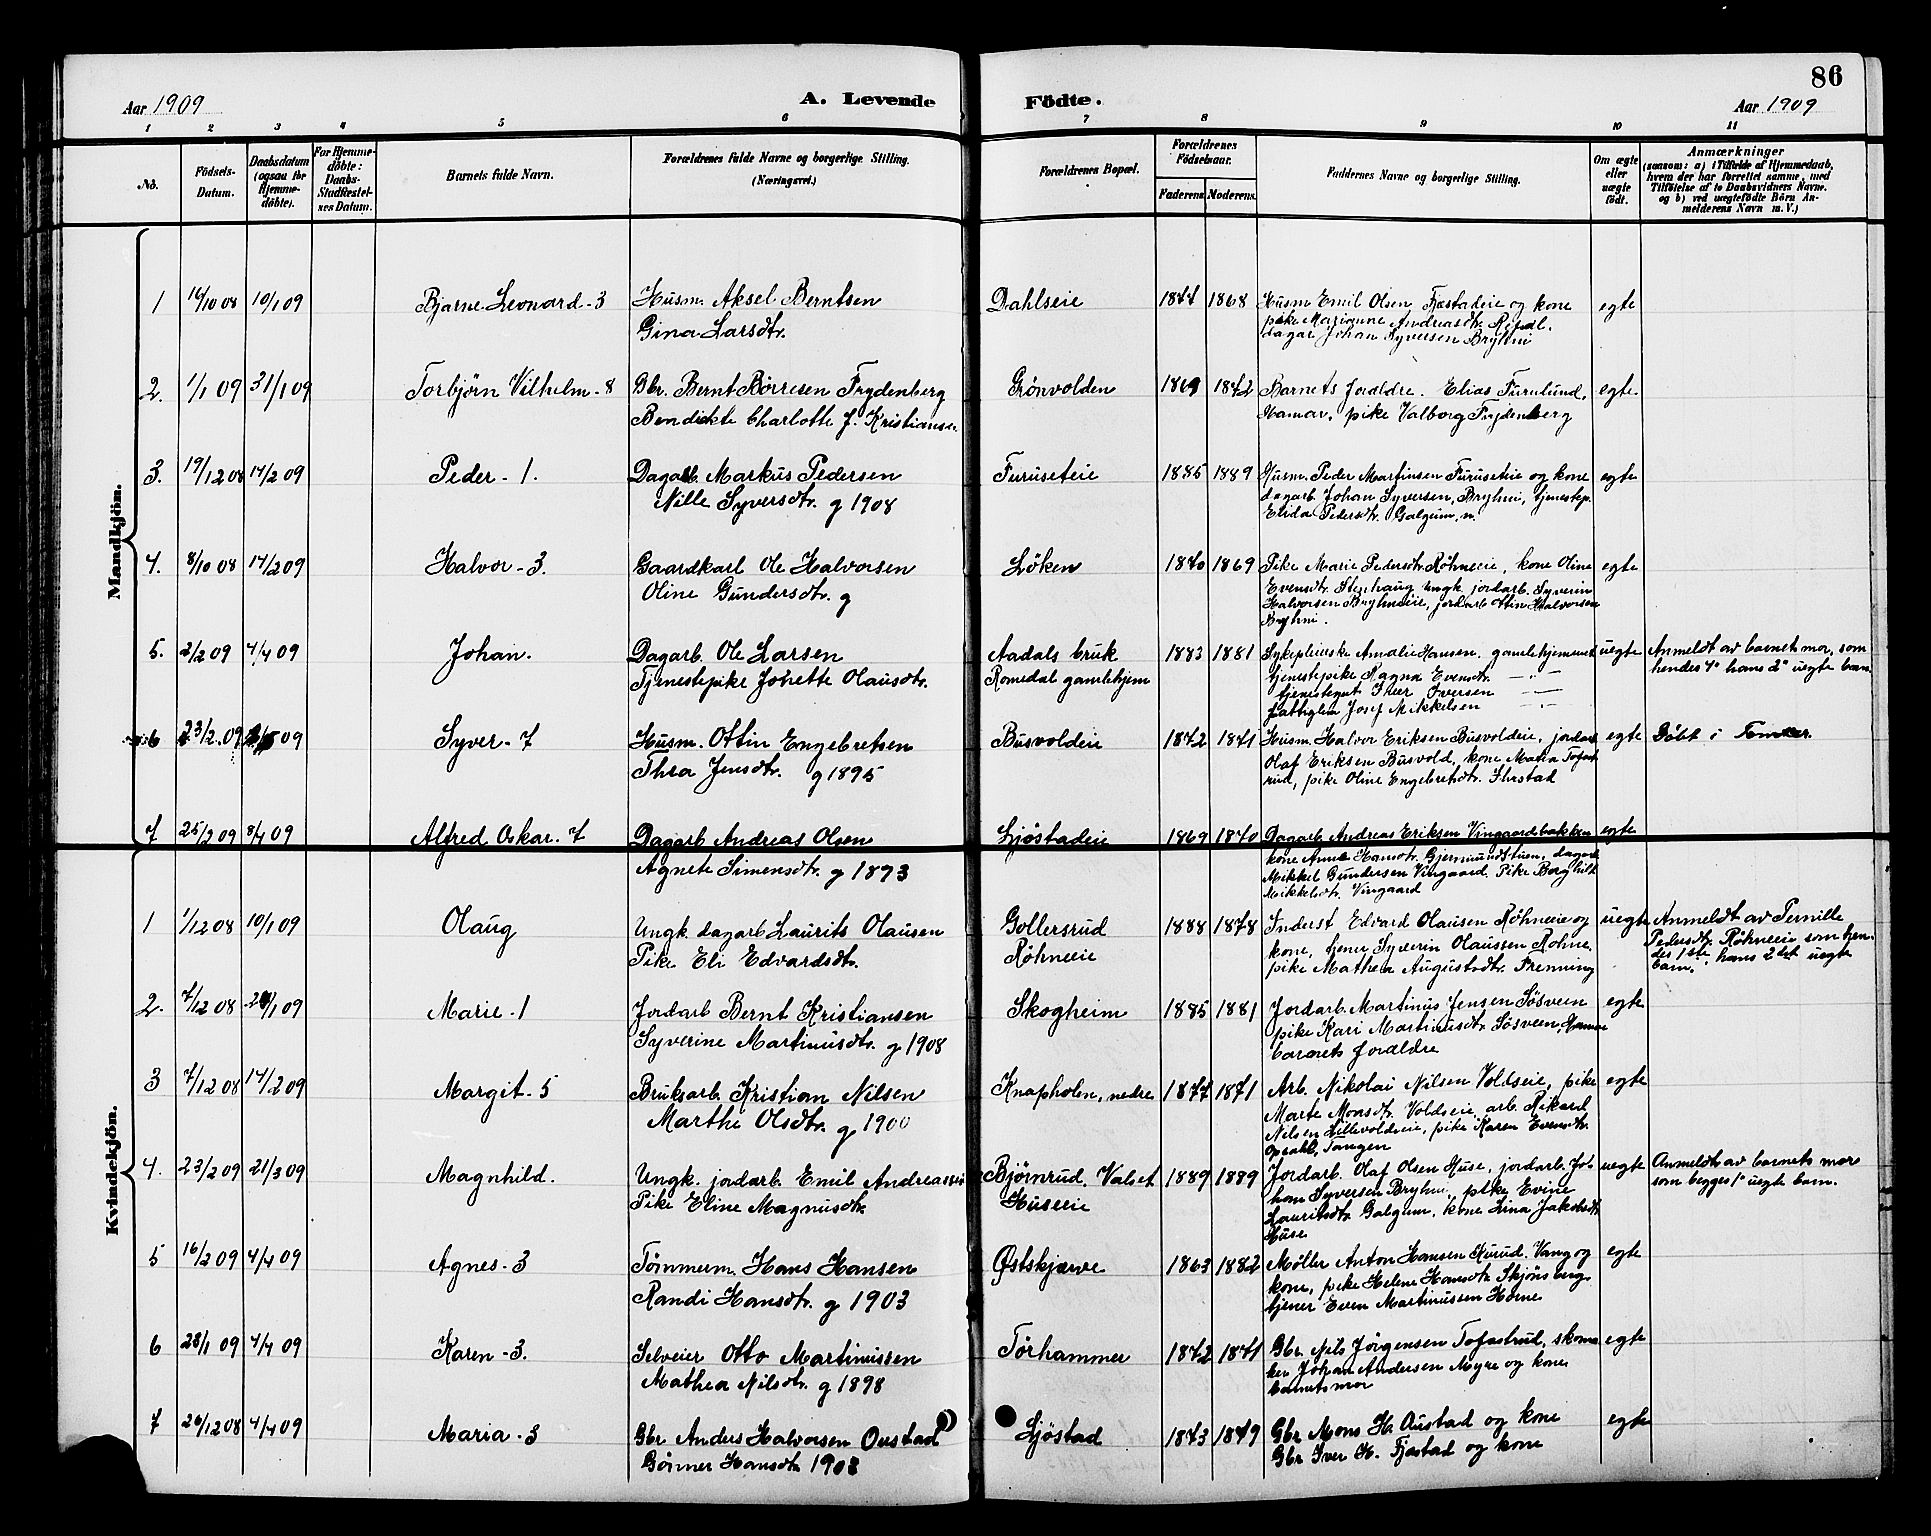 86
Aar 1909
A. Levende Fødte.
Aar 1909
1 2 3 4 5 6 7 8 9 10 11
No.
Födsels-Datum.
Daabsdatum (ogsaa for Hjemme-döbte).
For Hjemme-döbte: Daabs-Stadfæstel-ses Datum.
Barnets fulde Navn.
Forældrenes fulde Navne og borgerlige Stilling.
(Næringsvei.)
Forældrenes Bopæl.
Forældrenes Födselsaar.
Faderens Moderens
Faddernes Navne og borgerlige Stilling.
Om ægte eller uægte födt.
Anmærkninger
(saasom: a) i Tilfælde af Hjemmedaab, hvem der har forrettet samme, med Tilföielse af to Daabsvidners Navne, og b) ved uægtefödte Börn Anmelderens Navn m. V.)
Mandkjön.
1 16/10 08 10/1 09 Bjarne Leonard - 3 Husm. Aksel Berntsen Dahlseie 1877 1868 Husm Emil Olsen Fjæstadeie og kone egte
Gina Larsdtr. pike Marianne Andreasdtr.
dagar Johan Syversen Bryhni
2. 1/1 09 31/1 09 Torbjörn Vilhelm - 8 Gbr. Bernt Børresen Frydenberg Grönvolden 1869 1872 Barnets foraldre. Elias Furulund, egte
Bendikte Charlotte f. Kristiansen Hamar, pike Valborg Frydenberg
3. 19/12 08 14/2 09 Peder - 1. Dagarb. Markus Pedersen Furuseteie 1885 1889 Husm. Peder Martinsen Furuseteie og kone egte
Nille Syversdtr. g 1908 dagarb Johan Syversen, Bryhni, tjenestep.
Elida Pedersdtr. Galgum, n.
4. 8/10 08 14/2 09 Halvor - 3. Gaardkarl Ole Halvorsen Löken 1870 1869 Pike Marie Pedersdtr. Röhneeie, kone Oline egte
Oline Gundersdtr. g Evensdtr. Stenhaug ungk. jordarb. Syverin
Halvorsen Bryhnieie, jordarb Ottin Halvorsen
Bryhni.
5. 2/2 09 4/4 09 Johan. Dagarb. Ole Larsen Aadals bruk 1883 1881 Sykepleierske Amalie Hansen, gamlehjemmet uegte Anmeldt av barnets mor, som
Tjenestepike Johette Olausdtr. Romedal gamlehjem tjenestepike Ragna Evensdtr. — " — hendes 4° hans 2° uegte barn.
tjenestegut Iver Iversen — —
fattiglem Josef Mikkelsen — " —
6 23/2 09 09 Syver - 7 Husm. Ottin Engebretsen Busvoldeie 1872 1871 Husm. Halvor Eriksen Busvoldeie, jordarb egte Döbt i
Thea Jensdtr. g 1895 Olaf Eriksen Busvold, kone Martia Tofast
rud, pike Oline Engebretsdtr.
7 25/2 09 8/4 09 Alfred Oskar - 7 Dagarb Andreas Olsen Ljöstadeie 1869 1870 Dagarb Andreas Eriksen Vingaardbakken egte
Agnete Simensdtr. g 1893 kone Anne Hansdtr. Gjermundstuen, dagarb
Mikkel Gundersen Vingaard. Pike Borghild
Mikkelsdtr. Vingaard
Kvindekjön.
1 1/12 08 10/1 09 Olaug Ungk. dagarb Laurits Olausen Gollersrud 1888 1878 Inderst Edvard Olausen Röhneeie og uegte Anmeldt av Pernille
Pike Eli Edvardsdtr. Röhneeie kone, tjener Syverin Olaussen Röhne Pedersdtr. Röhneeie som hen-
pike Mathea Augustsdtr. Frenning des 1ste hans 2det uegte
barn.
2. 7/12 08 1 09 Marie - 1 Jordarb Bernt Kristiansen Skogheim 1885 1881 Jordarb. Martinus Jensen Sösveen egte
Syverine Martinusdtr. g 1908 pike Kari Martinusdtr. Sösveen, Hamar
barnets foraldre
3 7/12 08 14/2 09 Margit - 5 Bruksarb. Kristian Nilsen Knapholen, nedre 1877 1871 Arb. Nikolai Nilsen Voldseie, pike egte
Marthe Olsdtr. g 1900 Marte Monsdtr. Voldseie, arb. Rikard
Nilsen Lillevoldseie, pike Karen Evensdtr.
Opsahl, Tangen
4. 23/2 09 21/3 09 Magnhild. Ungk. jordarb. Emil Andreassen Bjørnrud, Valset 1889 1889 Jordarb. Olaf Olsen Huse, jordarb. Jo- uegte Anmeldt av barnets mor
Pike Eline Magnusdtr. Huseeie han Syversen Bryhni, pike Evine som begges 1° uegte barn.
Lauritsdtr. Galgum, kone Lina Jakobsdtr.
Huse
5 16/2 09 4/4 09 Agnes - 3 Tömmerm. Hans Hansen Østskjærve 1863 1882 Møller Anton Hansen Kurud, Vang og egte
Randi Hansdtr. g 1903 kone, pike Helene Hansdtr. Skjönsberg
tjener Even Martinussen Horne
6 28/1 09 4/4 09 Karen - 3. Selveier Otto Martinussen Törhammer 1872 1871 Gbr. Nils Jörgensen Tofastrud, skoma- egte
Mathea Nilsdtr. g 1898 ker Johan Andersen Myre og kone
barnets mor
7 26/12 08 4/4 09 Maria - 3 Gbr Anders Halvorsen Oustad Ljöstad 1873 1879 Gbr Mons H. Oustad og kone egte
Hansdtr 1903 Gbr Iver H. Fjæstad og kone